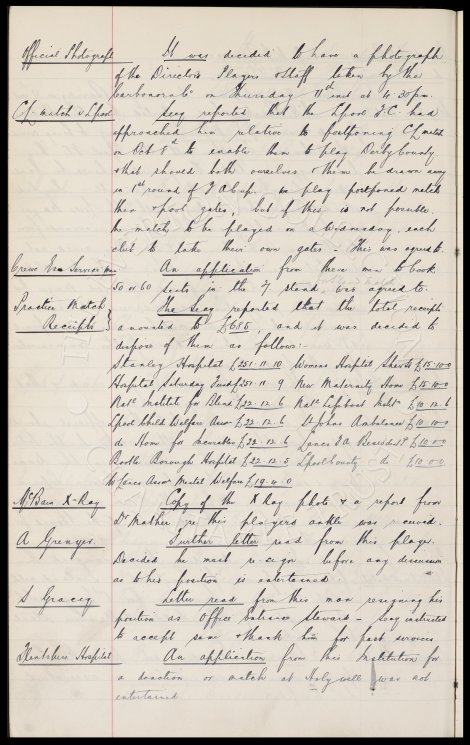 Official Photograph It was decided to have a photograph
of the Directors Players & Staff taken by the
"Carbonora Co" on Thursday 11th inst at 4.30pm.
CL match v Lpool Secy reported that the Lpool F.C. had
approached him relative to postponing CL match
on Oct 8th to enable them to play Derby County
& that should both ourselves & them be drawn away
in 1st round of F A Cup, we play postponed match
then & pool gates, but if this is not possible,
the match to be played on a Wednesday, each
club to take their own gates - This was agreed to.
Crewe Ex Service Men An application from these men to book
50 or 60 seats in the stand was agreed to.
Practice Match The Secy reported that the total receipts
Receipts amounted to £686, and it was decided to
dispose of them as follows:-
Stanley Hospital £251-11-10 Womens Hospital Shaw St £15-10-0
Hospital Saturday Fund £251-11-9 New Maternity Home £15-10-0
Natl Institute for Blind £22-12-6 Natl Lifeboat Instn £10-12-6
Lpool Child Welfare Assn £22-12-6 St Johns Ambulance £10-10-0
do Home for Incurables £22-12-6 Lancs F.A. Benevolent £10-0-0
Bootle Borough Hospital £22-12-5 Lpool County do £10-0-0
Lancs Assn Mental Welfare £19-4-0
McBain X-Ray Copy of the X Ray photo & a report from
Dr Mather re this players ankle was received.
A Grenyer. Further letter read from this player.
Decided he must re-sign before any discussion
as to his position is entertained.
S Gracey Letter read from this man resigning his
position as Office Entrance Steward - Secy instructed
to accept same & thank him for past services
Flintshire Hospital An application from this Institution for
a donation or match at Holywell was not
entertained